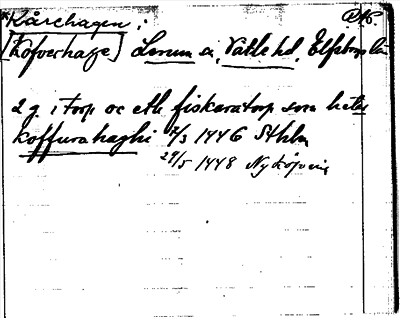 *Kårehagen;
[Kofverhage] Lerum s:, Vättle hd, Elfsborgs län
2 g. i torp oc eth fiskaratorp som heter
koffurahaghi 12/3 1446 Sthlm
29/5 1448 Nyköping